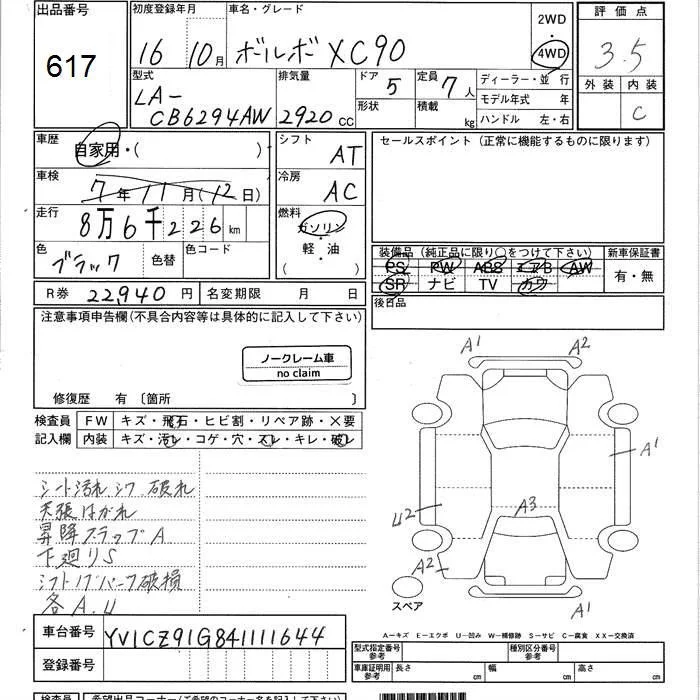 出品番号
617
初度登録年月
16 10月
車名・グレード
ボルボ XC90
2WD
・
4WD
評価点
3.5
外装 内装
C
型式
LA-
CB6294AW
排気量
2920 CC
ドア 5
形状
定員 7 人
積載 kg
ディーラー・並 行
モデル年式 年
ハンドル 左・右
車歴
自家用・( )
車検
7年11月(12日)
走行
8万6千226km
色
ブラック
色替
色コード
シフト
AT
冷房
AC
燃料
ガソリン
・
軽・油
( )
セールスポイント (正常に機能するものに限ります)
装備品 (純正品に限り○をつけて下さい)
PS PW ABS エアB AW
SR ナビ TV カワ
新車保証書
有・無
後日品
R券 22,940 円
名変期限 月 日
注意事項申告欄(不具合内容等は具体的に記入して下さい)
ノークレーム車
no claim
修復歴 有 〔箇所 〕
検査員
記入欄
FW キズ・飛石・ヒビ割・リペア跡・×要
内装 キズ・汚レ・コゲ・穴・スレ・キレ・破レ
シート汚れ シワ 破れ
天張はがれ
昇降フラップ A
下廻り S
シフトノブ パーク破損
各 A.U
A1 A2
A1
U2
A3
A2
A1
スペア
車台番号 YV1CZ91G841111644
登録番号
A—キズ E—エクボ U—凹み W—補修跡 S—サビ C—腐食 XX—交換済
型式指定番号
参考
種別区分番号
参考
車庫証明用
参考
長さ cm 幅 cm 高さ cm
検査員
希望出品コーナー(ご希望のコーナー名を記入